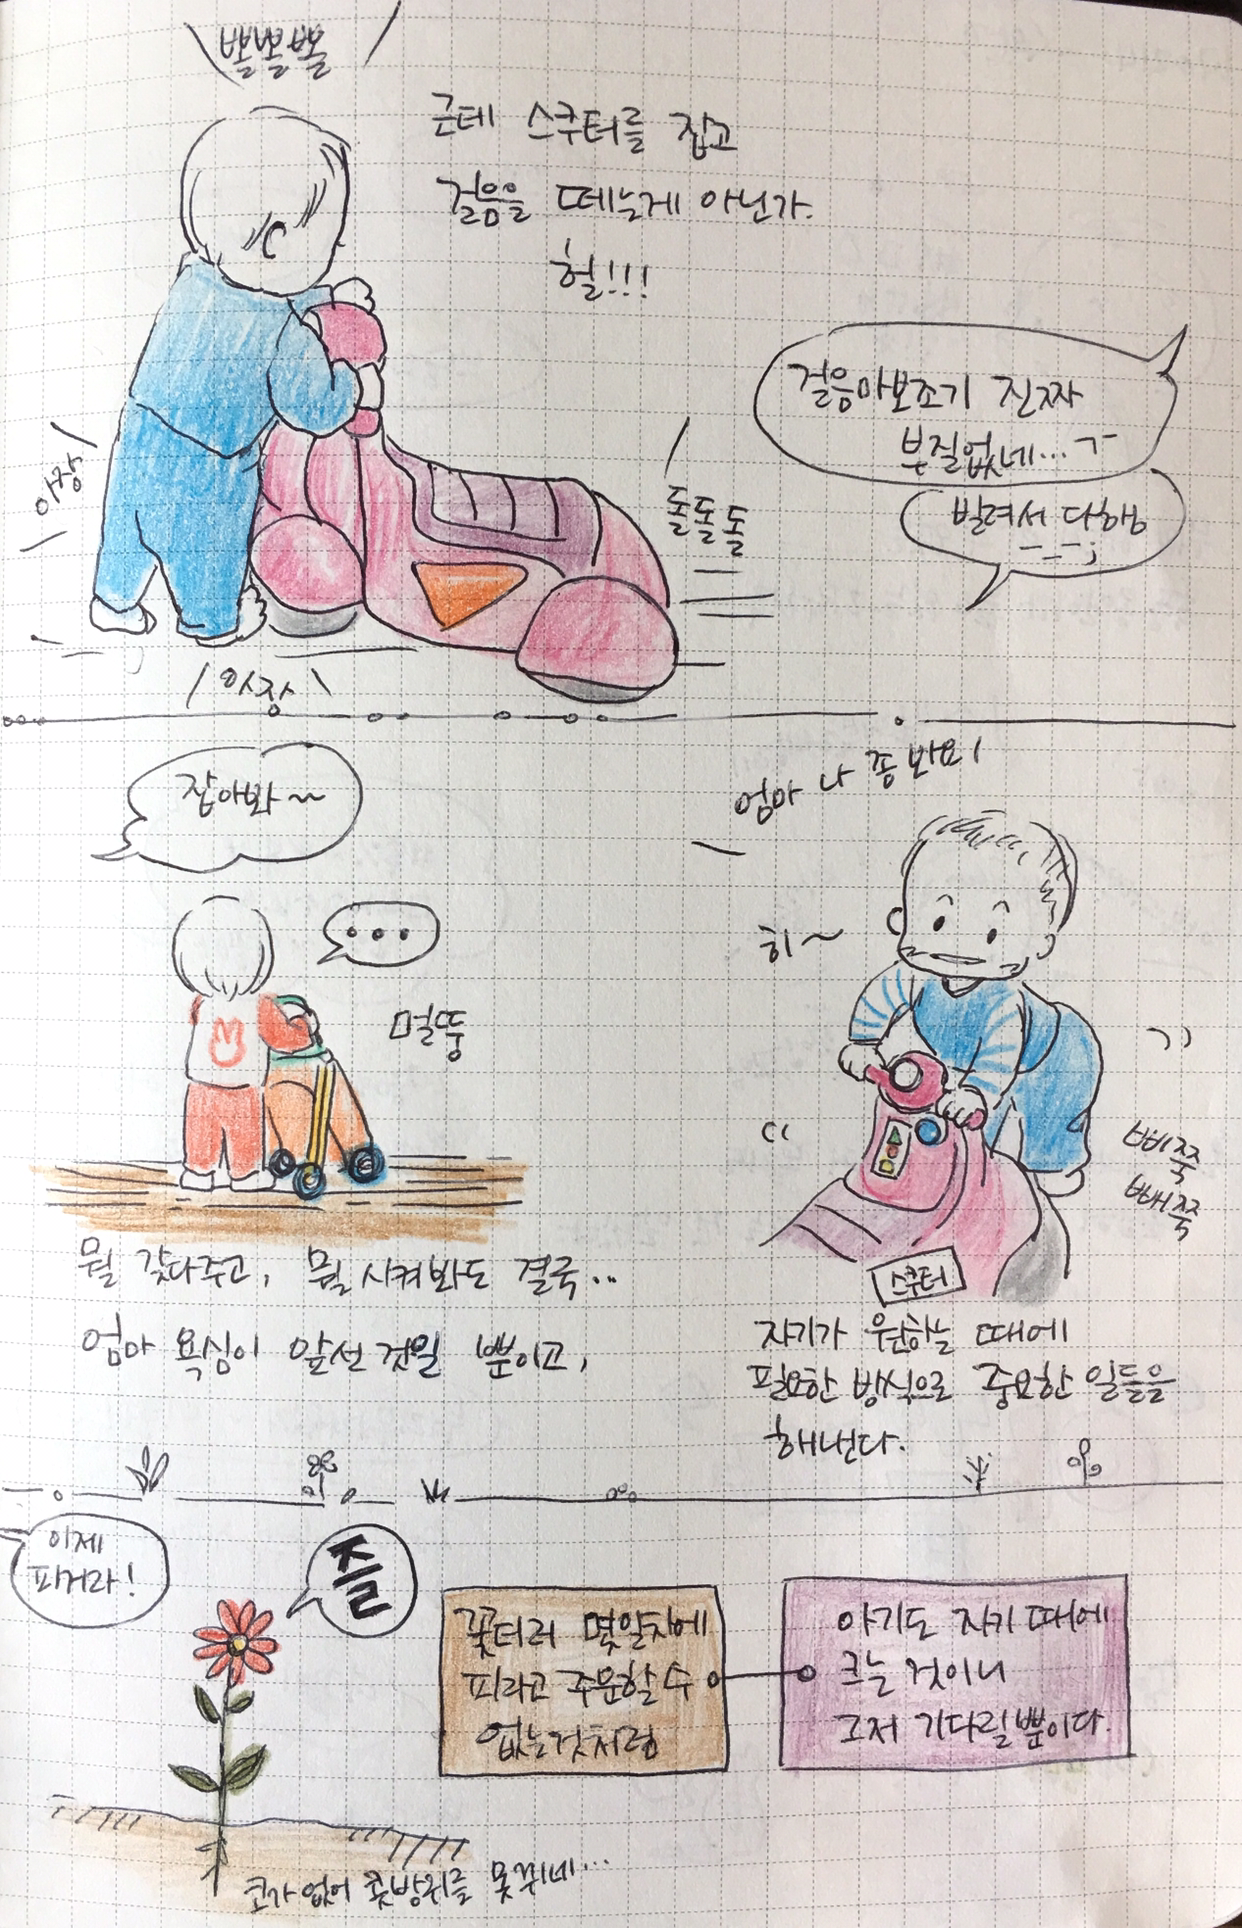 뽈뽈뽈
근데 스쿠터를 잡고
걸음을 떼는게 아닌가.
헐!!!
걸음마보조기 진짜
부질없네...ㅜ
빌려서 다행
ㅡ_ㅡ;
아장
돌돌돌
아장
잡아봐~
...
멀뚱
엄마 나 좀 봐요!
히~
삐쭉
빼쭉
스쿠터
뭘 갖다주고, 뭘 시켜봐도 결국..
엄마 욕심이 앞선 것일 뿐이고,
자기가 원하는 때에
필요한 방식으로 중요한 일들을
해낸다.
이제
피거라!
즐
꽃더러 몇일차에
피라고 주문할 수
없는것처럼
아기도 자기 때에
크는 것이니
그저 기다릴뿐이다.
코가 없어 콧방귀를 못뀌네...